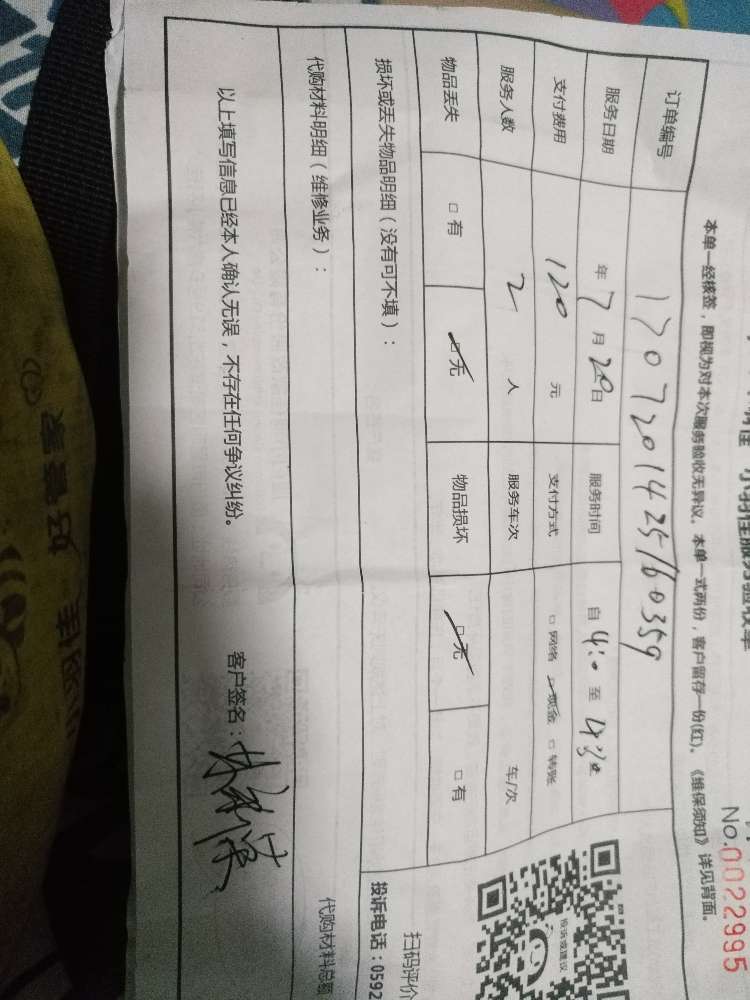 小羽佳服务验收单
No.0022995
本单一经核签，即视为对本次服务验收无异议。本单一式两份，客户留存一份(红)。《维保须知》详见背面。
订单编号 1707201425160359
服务日期 年 7 月 20 日 服务时间 自 4:0 至 4:30
支付费用 120 元 支付方式 □ 网络 □ 现金 □ 转账
服务人数 2 人 服务车次 车/次
物品丢失 □ 有 □ 无 物品损坏 □ 无 □ 有
损坏或丢失物品明细（没有可不填）：
代购材料明细（维修业务）： 代购材料总额
以上填写信息已经本人确认无误，不存在任何争议纠纷。 客户签名：
投诉或建议
扫码评价
投诉电话：0592
好管家
小羽佳